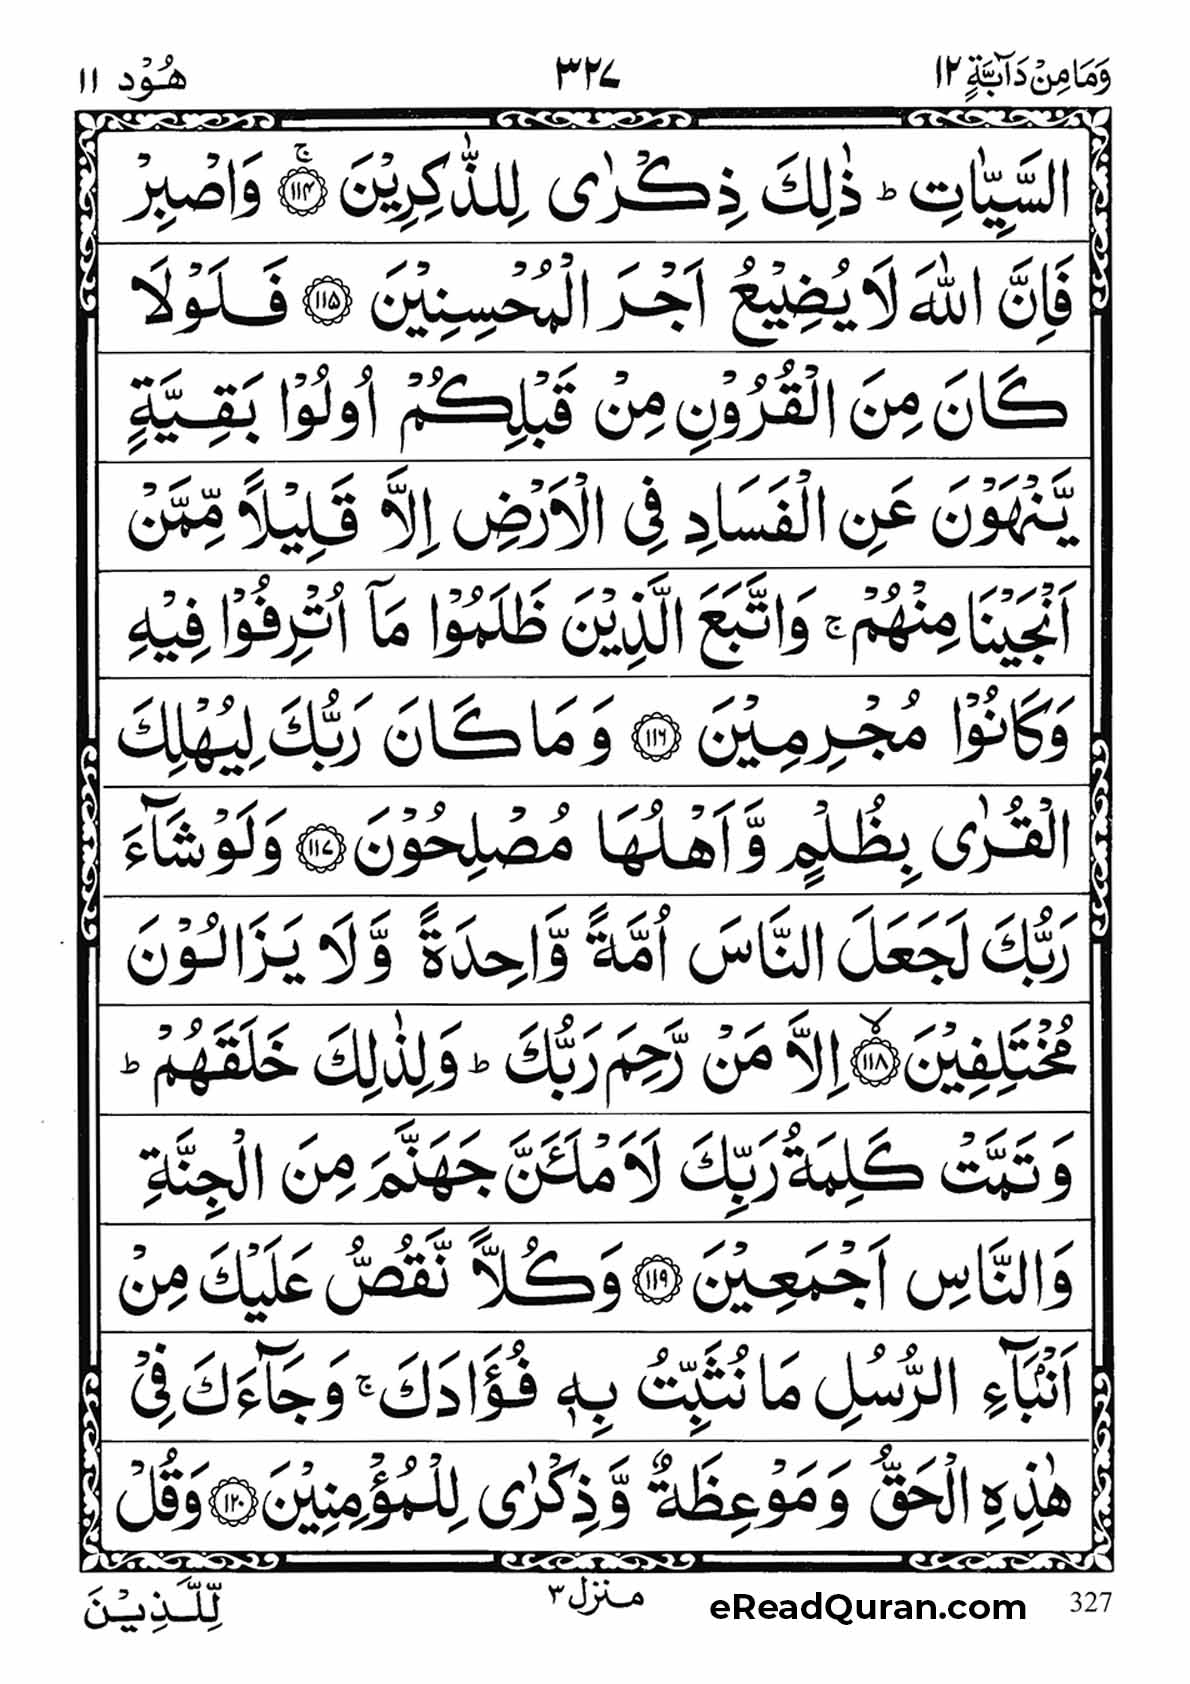 وَمَا مِنْ دَآبَّةٍ ١٢ ٣٢٧ هُوْد ١١
السَّيِّاٰتِ ؕ ذٰلِكَ ذِكْرٰى لِلذّٰكِرِيْنَ ۚ‏﴿۱۱۴﴾ وَاصْبِرْ
فَاِنَّ اللّٰهَ لَا يُضِيْعُ اَجْرَ الْمُحْسِنِيْنَ ﴿۱۱۵﴾ فَلَوْلَا
كَانَ مِنَ الْقُرُوْنِ مِنْ قَبْلِكُمْ اُولُوْا بَقِيَّةٍ
يَّنْهَوْنَ عَنِ الْفَسَادِ فِى الْاَرْضِ اِلَّا قَلِيْلًا مِّمَّنْ
اَنْجَيْنَا مِنْهُمْ ۚ وَاتَّبَعَ الَّذِيْنَ ظَلَمُوْا مَاۤ اُتْرِفُوْا فِيْهِ
وَكَانُوْا مُجْرِمِيْنَ ﴿۱۱۶﴾ وَمَا كَانَ رَبُّكَ لِيُهْلِكَ
الْقُرٰى بِظُلْمٍ وَّاَهْلُهَا مُصْلِحُوْنَ ﴿۱۱۷﴾ وَلَوْ شَآءَ
رَبُّكَ لَجَعَلَ النَّاسَ اُمَّةً وَّاحِدَةً وَّلَا يَزَالُوْنَ
مُخْتَلِفِيْنَ ۙ﴿۱۱۸﴾ اِلَّا مَنْ رَّحِمَ رَبُّكَ ؕ وَلِذٰلِكَ خَلَقَهُمْ ؕ
وَتَمَّتْ كَلِمَةُ رَبِّكَ لَاَمْلَئَنَّ جَهَنَّمَ مِنَ الْجِنَّةِ
وَالنَّاسِ اَجْمَعِيْنَ ﴿۱۱۹﴾ وَكُلًّا نَّقُصُّ عَلَيْكَ مِنْ
اَنْۢبَآءِ الرُّسُلِ مَا نُثَبِّتُ بِهٖ فُؤَادَكَ ۚ وَجَآءَكَ فِىْ
هٰذِهِ الْحَقُّ وَمَوْعِظَةٌ وَّذِكْرٰى لِلْمُؤْمِنِيْنَ ﴿۱۲۰﴾ وَقُلْ
لِّلَّذِيْنَ منزل ٣ eReadQuran.com 327